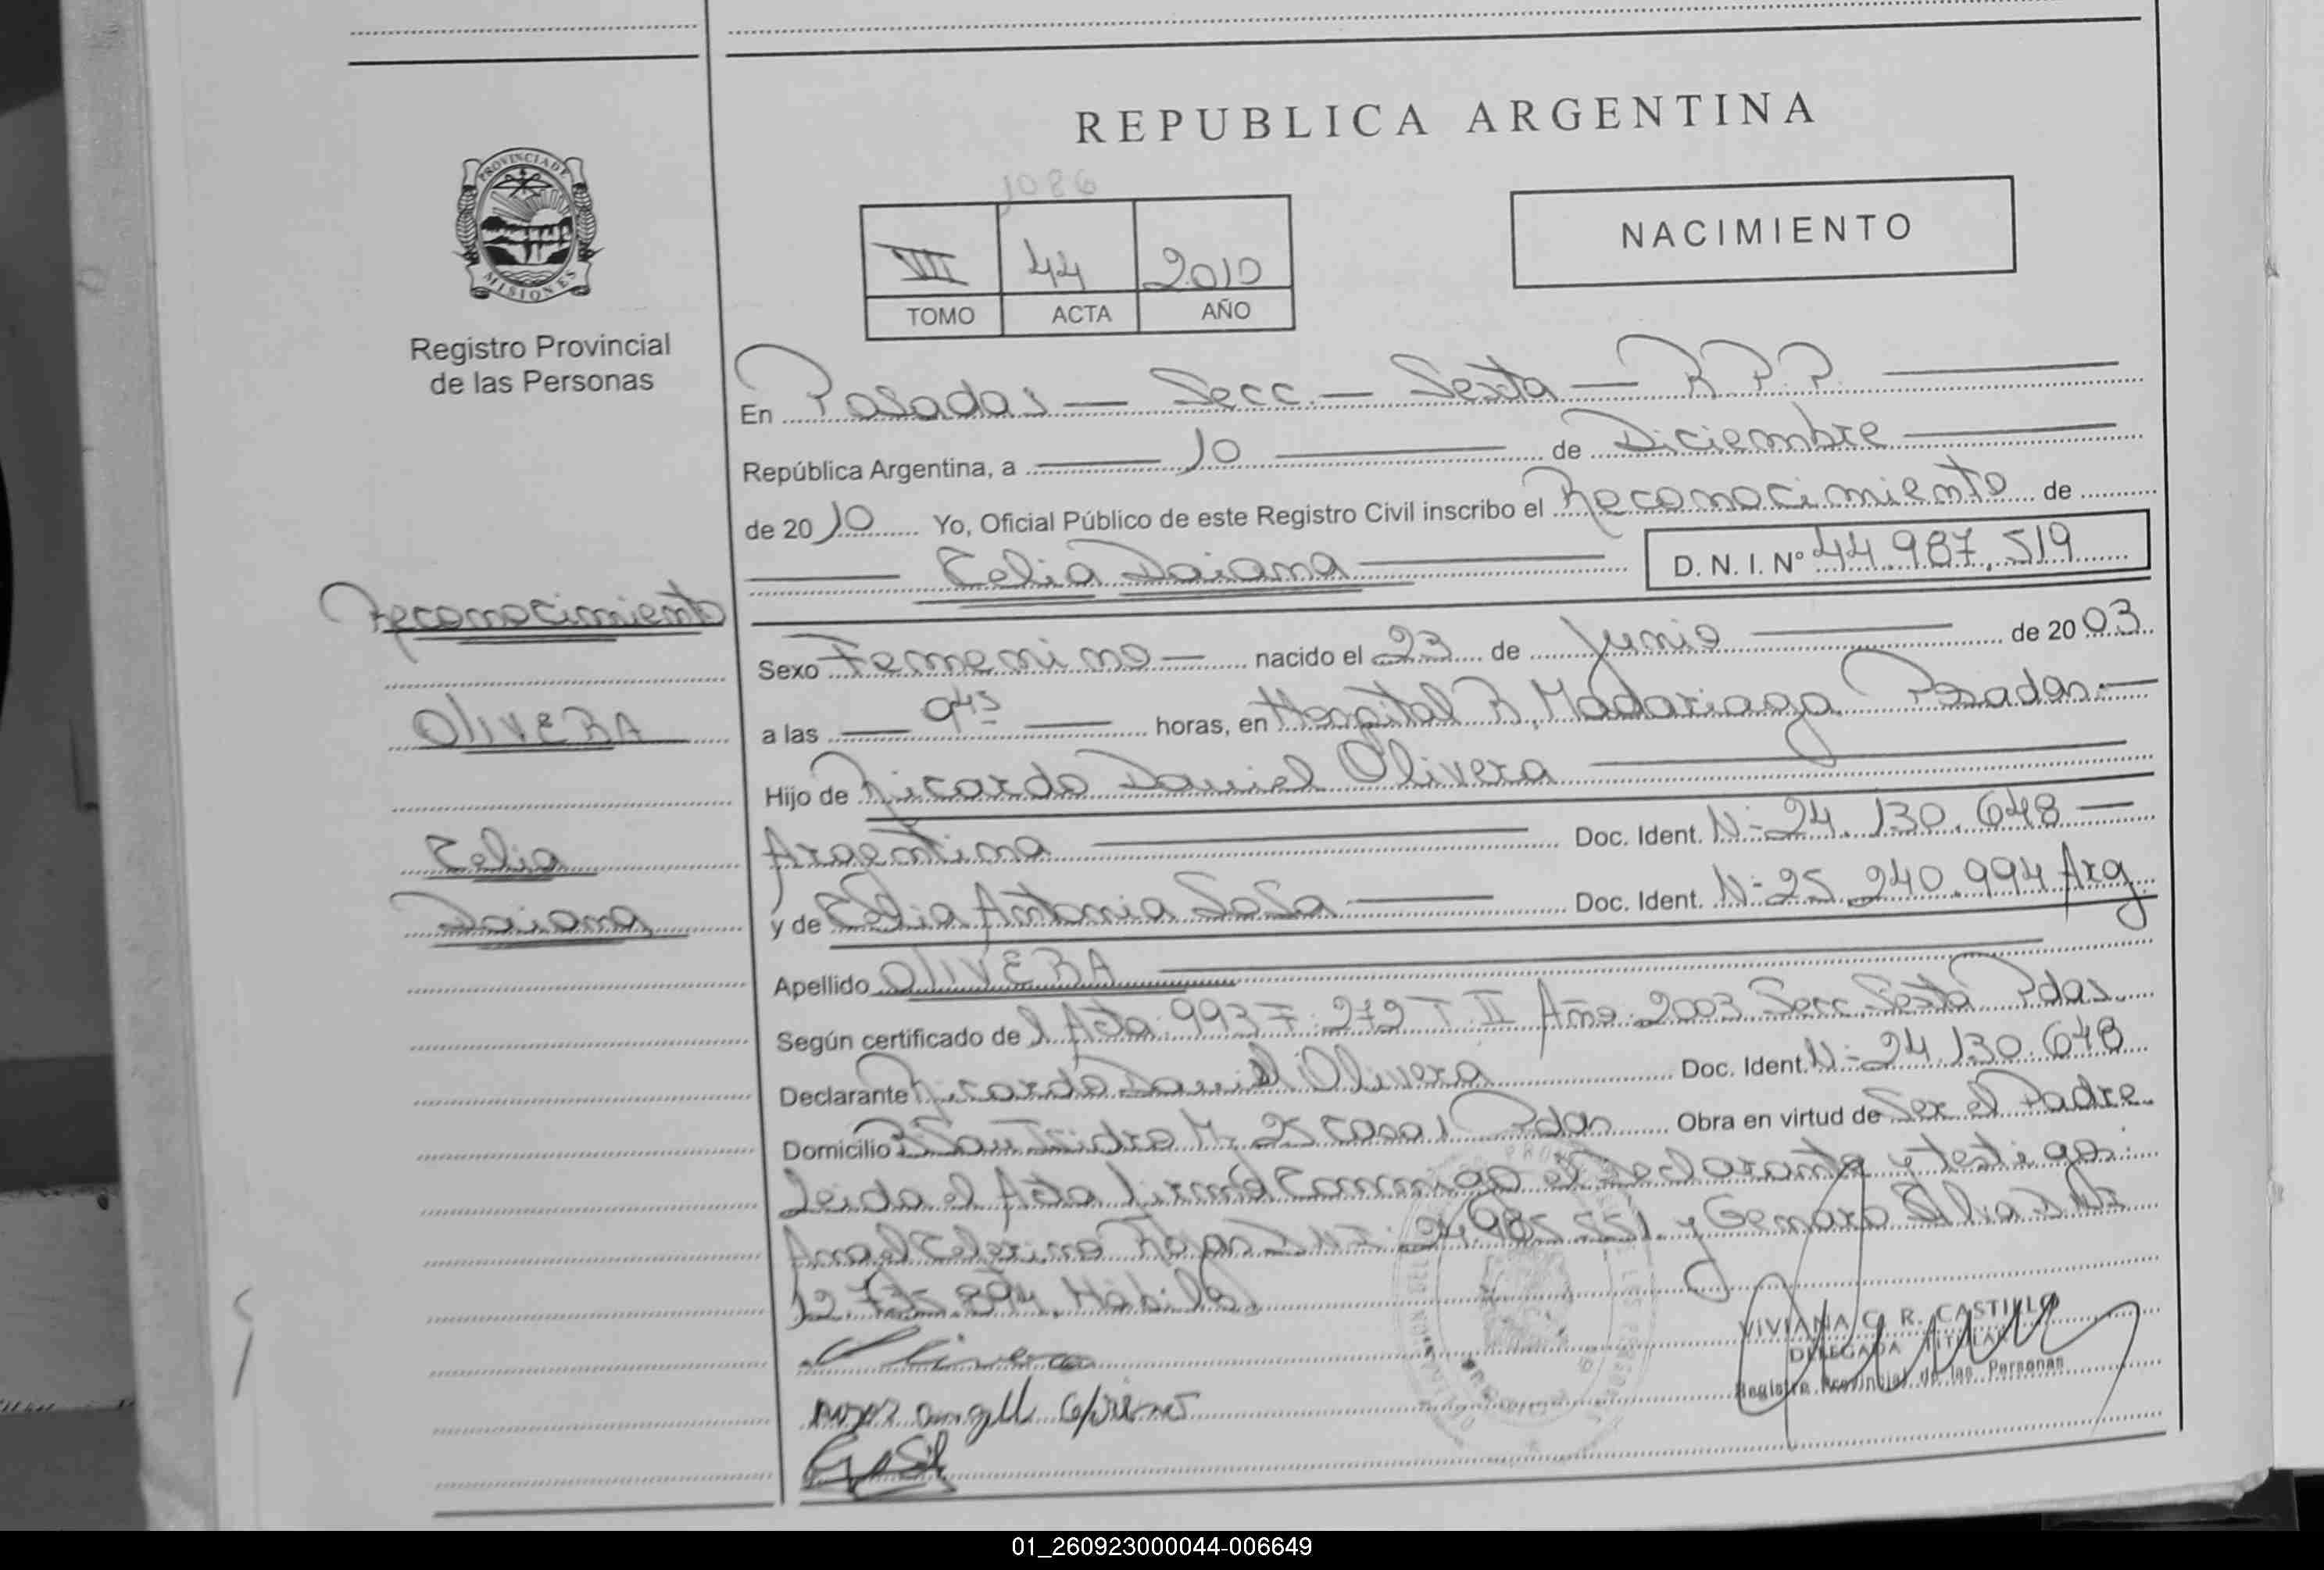 REPUBLICA ARGENTINA
1086
PROVINCIA DE
MISIONES
Registro Provincial
de las Personas
VII 44 2010
TOMO ACTA AÑO
NACIMIENTO
En Posadas — Secc. — Sexta — R.P.P.
República Argentina, a 10 de Diciembre
de 2010 Yo, Oficial Público de este Registro Civil inscribo el Reconocimiento de
Celia Daiana D. N. I. Nº 44.987.519
Reconocimiento
OliVERA
Celia
Daiana
Sexo Femenino nacido el 23 de Junio de 2003
a las 9 45 horas, en Hospital R. Madariaga Posadas.
Hijo de Ricardo Daniel Olivera
Argentina Doc. Ident. N- 24.130.648
y de Celia Antonia Sosa Doc. Ident. N- 25.240.994 Arg.
Apellido OliVERA
Según certificado de l Acta: 993 F: 272 T: II Año: 2003 Secc. Sexta Pdas.
Declarante Ricardo Daniel Olivera Doc. Ident. N- 24.130.648
Domicilio casa Pdas Obra en virtud de Ser el Padre
Leida le Acta firmando conmigo el declarante y testigos:
y Genaro
VIVIANA C. R. CASTILLO
DELEGADA TITULAR
Registro Provincial de las Personas
Olivera
01_260923000044-006649